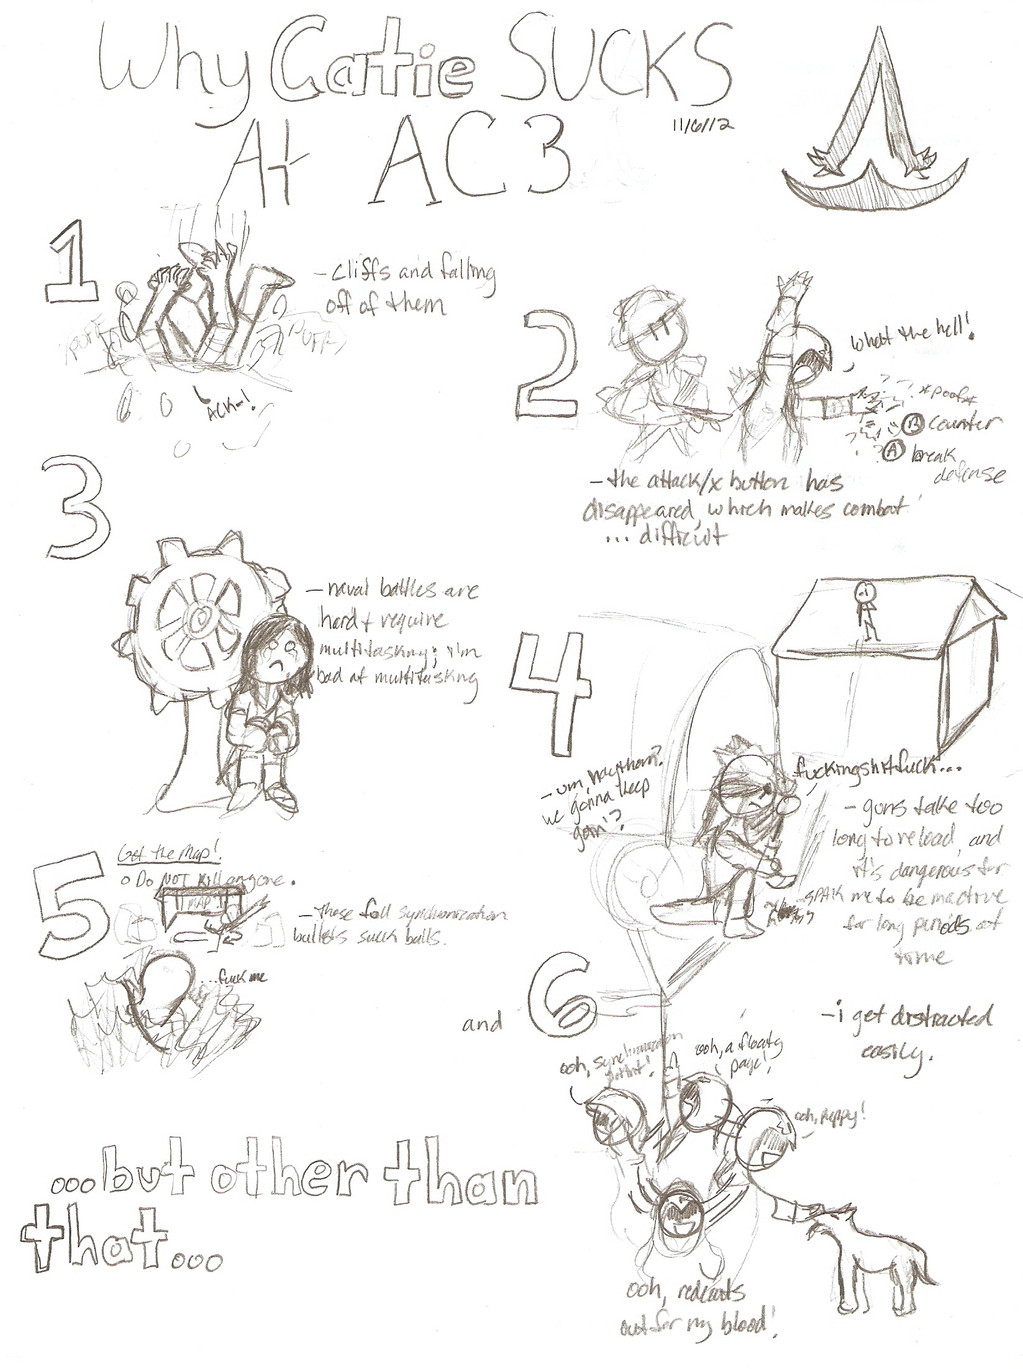 Why Catie SUCKS
At AC3
11/6/12
1
- cliffs and falling
off of them
POFF
POFF
ACK-!
2
What the hell!
*poof*
B counter
A break
defense
- the attack/x button has
disappeared, which makes combat
... difficult
3
- naval battles are
hard & require
multitasking; i'm
bad at multitasking
4
- um, haytham?
we gonna keep
goin'?
fuckingshitfuck...
- guns take too
long to reload, and
it's dangerous for
me to be inactive
for long periods of
time
SPARK
5
Get the Map!
o Do NOT kill anyone.
MAP
- these full synchronization
bullets suck balls.
...fuck me
and
6
- i get distracted
easily.
ooh, synchronization
point!
ooh, a floaty
page!
ooh, puppy!
ooh, redcoats
out for my blood!
...but other than
that...